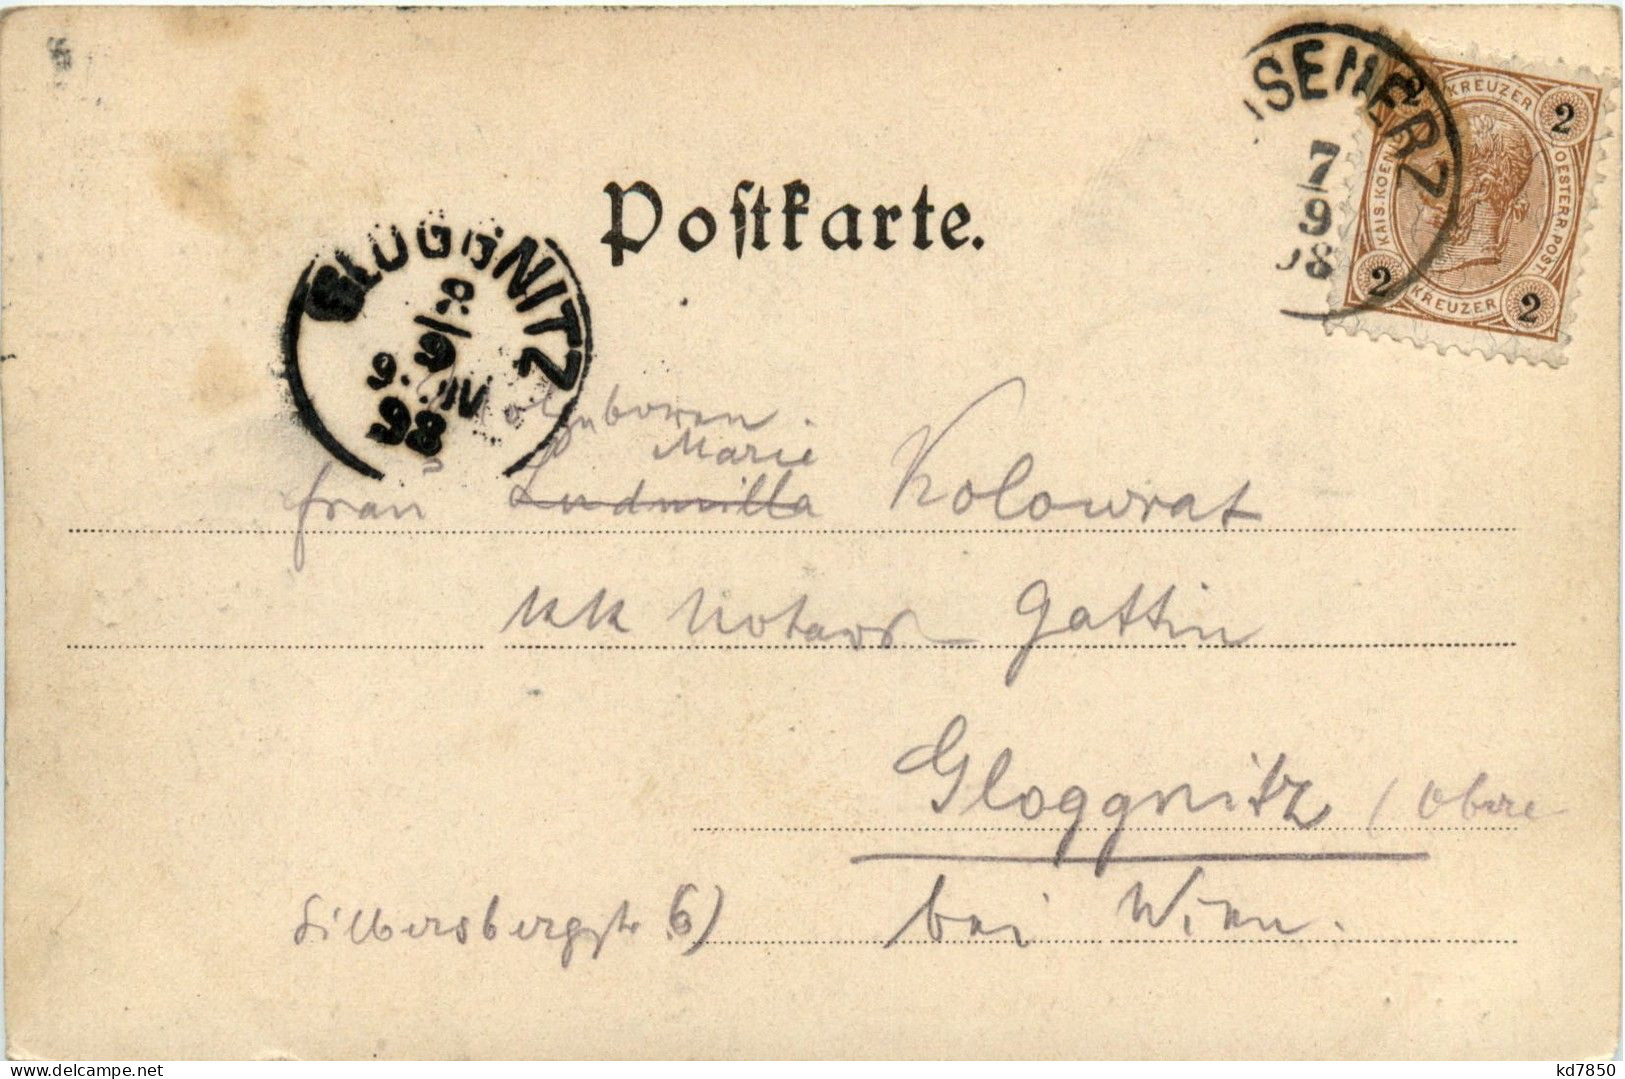 Postkarte.
ISENERZ
7
9
98
KREUZER
KAIS. KOENIGL.
OESTERR. POST.
KREUZER
2
2
2
2
GLOGGNITZ
8
9. 9. IV
98
Hochgeboren
Marie
Frau Ludmilla Kolowrat
kk Notars-Gattin
Gloggnitz (Obere
Silbersbergstr 6) bei Wien.
kd7850